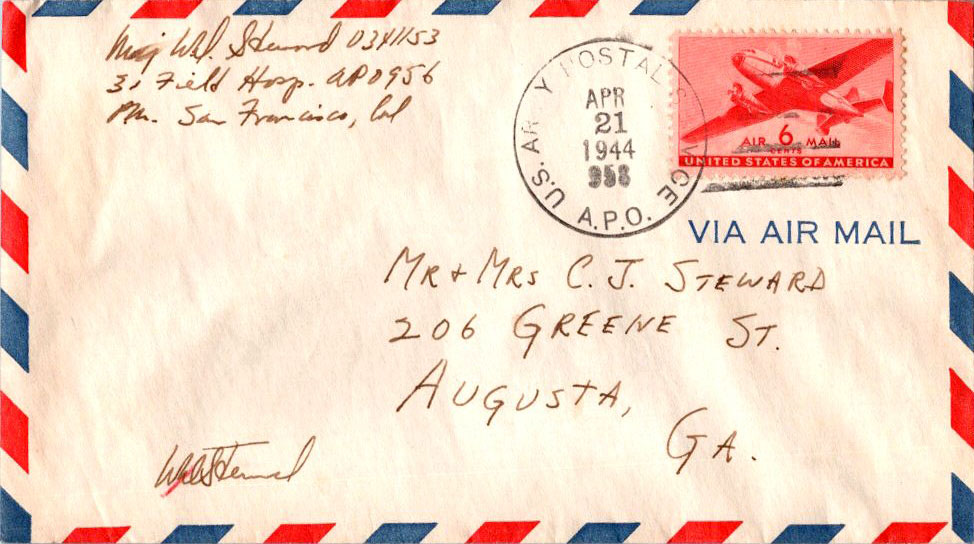 Maj Wm. Steward 0341153
31 Field Hosp. APO 956
PM. San Francisco, Cal
U.S. ARMY POSTAL SERVICE
APR
21
1944
958
A.P.O.
AIR 6 MAIL
CENTS
UNITED STATES OF AMERICA
VIA AIR MAIL
MR + MRS C. J. STEWARD
206 GREENE ST.
AUGUSTA,
GA.
Steward